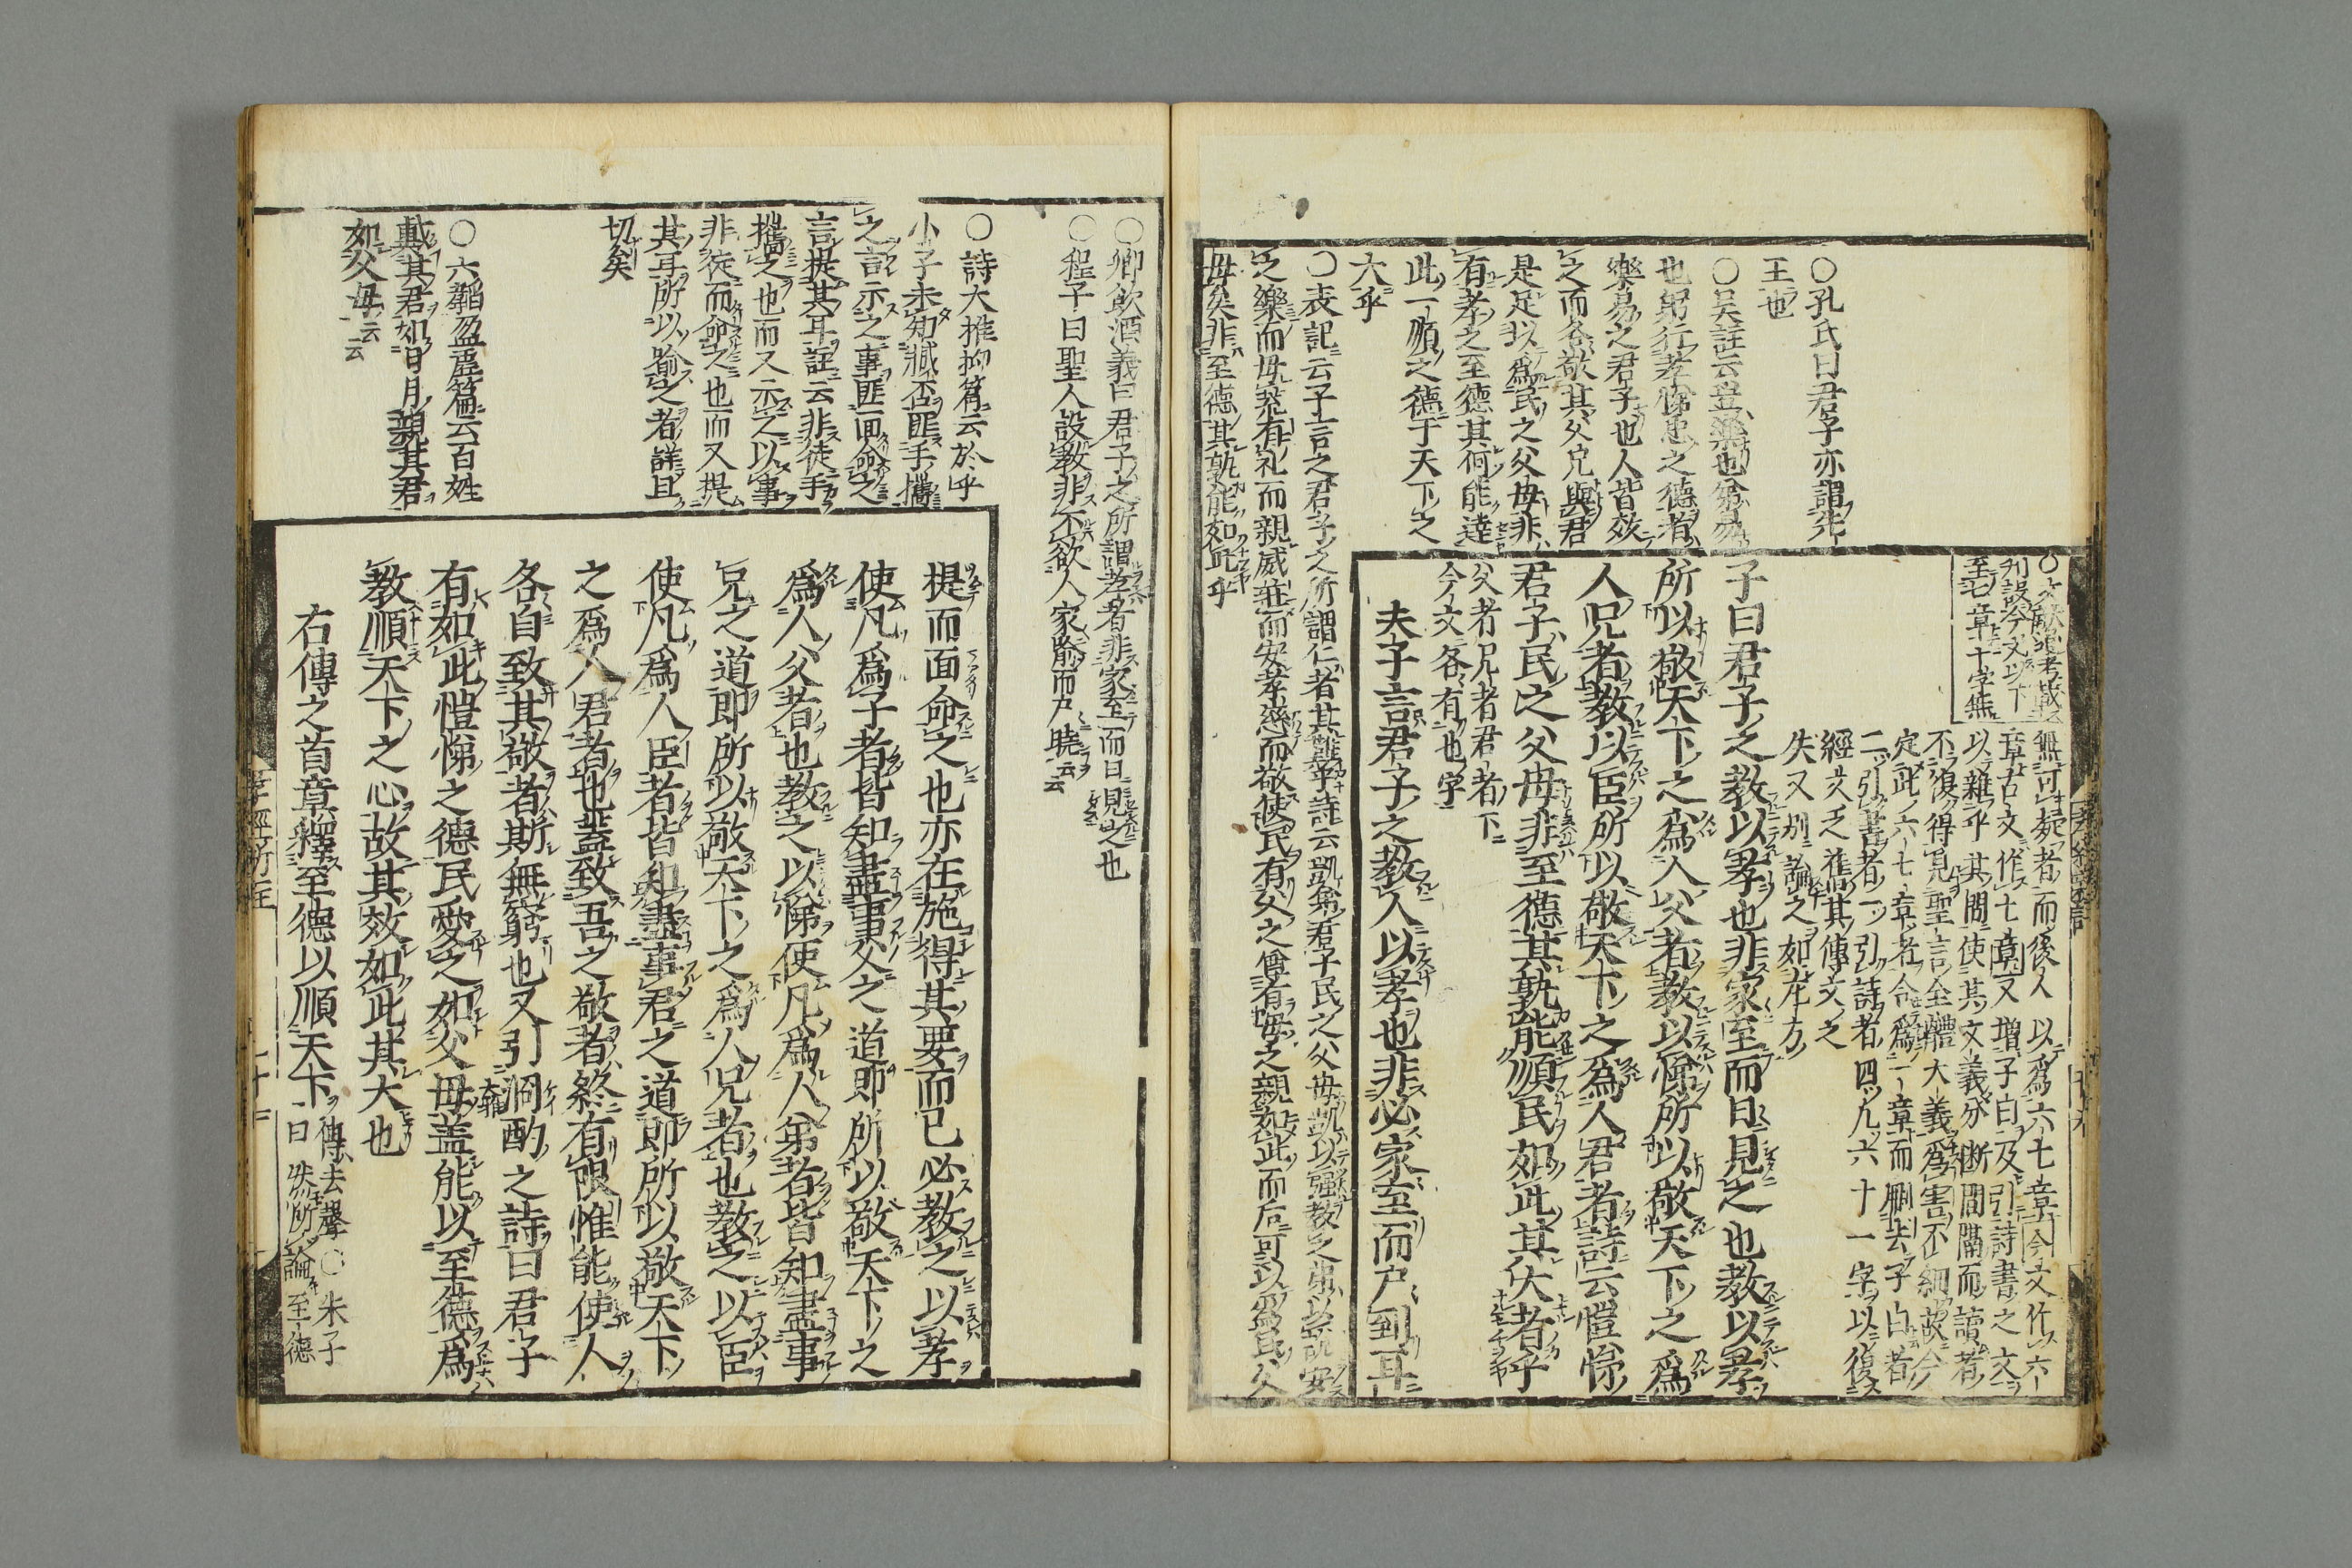 ○孔氏曰君子亦謂先
王也
○吴註云豈樂也弟易
也躬行孝悌忠之德者
樂易之君子也人皆效
之而各敬其父兄與君
是足以爲民之父母非
有孝之至德其何能達
此一順之德于天下之
大乎
○表記云子言之君子之所謂仁者其難乎詩云凱弟君子民之父母凱以强教之弟以説安
之樂而毋荒有礼而親威莊而安孝慈而敬使民有父之尊有母之親如此而后可以爲民父
母矣非至德其孰能如此乎
○文獻通考載
刊誤今文以下
至七章十字無
無可疑者而後人以爲六七章今文作六
章古文作七章又増子曰及引詩書之文
以雜乎其間使其文義分断間隔而讀者
不復得見聖言全體大義爲害不細故今
定此六七章者合爲一章而刪去子曰者
二引書者一引詩者四凡六十一字以復
經文之舊其傳文之
失又別論之如左方
子曰君子之教以孝也非家至而日見之也教以孝
所以敬天下之爲人父者教以悌所以敬天下之爲
人兄者教以臣所以敬天下之爲人君者詩云愷悌
君子民之父母非至德其孰能順民如此其大者乎
父者兄者君者下
今文各有也字
夫子言君子之教人以孝也非必家至而户到耳
○鄉飲酒義曰君子之所謂孝者非家至而日見之也
○程子曰聖人設教非不欲人家喻而戸曉云云
○詩大雅抑篇云於乎
小子未知臧否匪手攜
之言示之事匪面命之
言提其耳註云非徒手
攜之也而又示之以事
非徒面命之也而又提
其耳所以喻之者詳且
切矣
○六韜盈虚篇云百姓
戴其君如日月親其君
如父母云云
提而面命之也亦在施得其要而已必教之以孝
使凡爲子者皆知盡事父之道即所以敬天下之
爲人父者也教之以悌使凡爲人弟者皆知盡事
兄之道即所以敬天下之爲人兄者也教之以臣
使凡爲人臣者皆知盡事君之道即所以敬天下
之爲人君者也蓋致吾之敬者終有限惟能使人
各自致其敬者斯無窮也又引泂酌之詩曰君子
大雅
有如此愷悌之德民愛之如父母盖能以至德爲
教順天下之心故其效如此其大也
右傳之首章釋至德以順天下
傳去聲○朱子
曰然所論至德